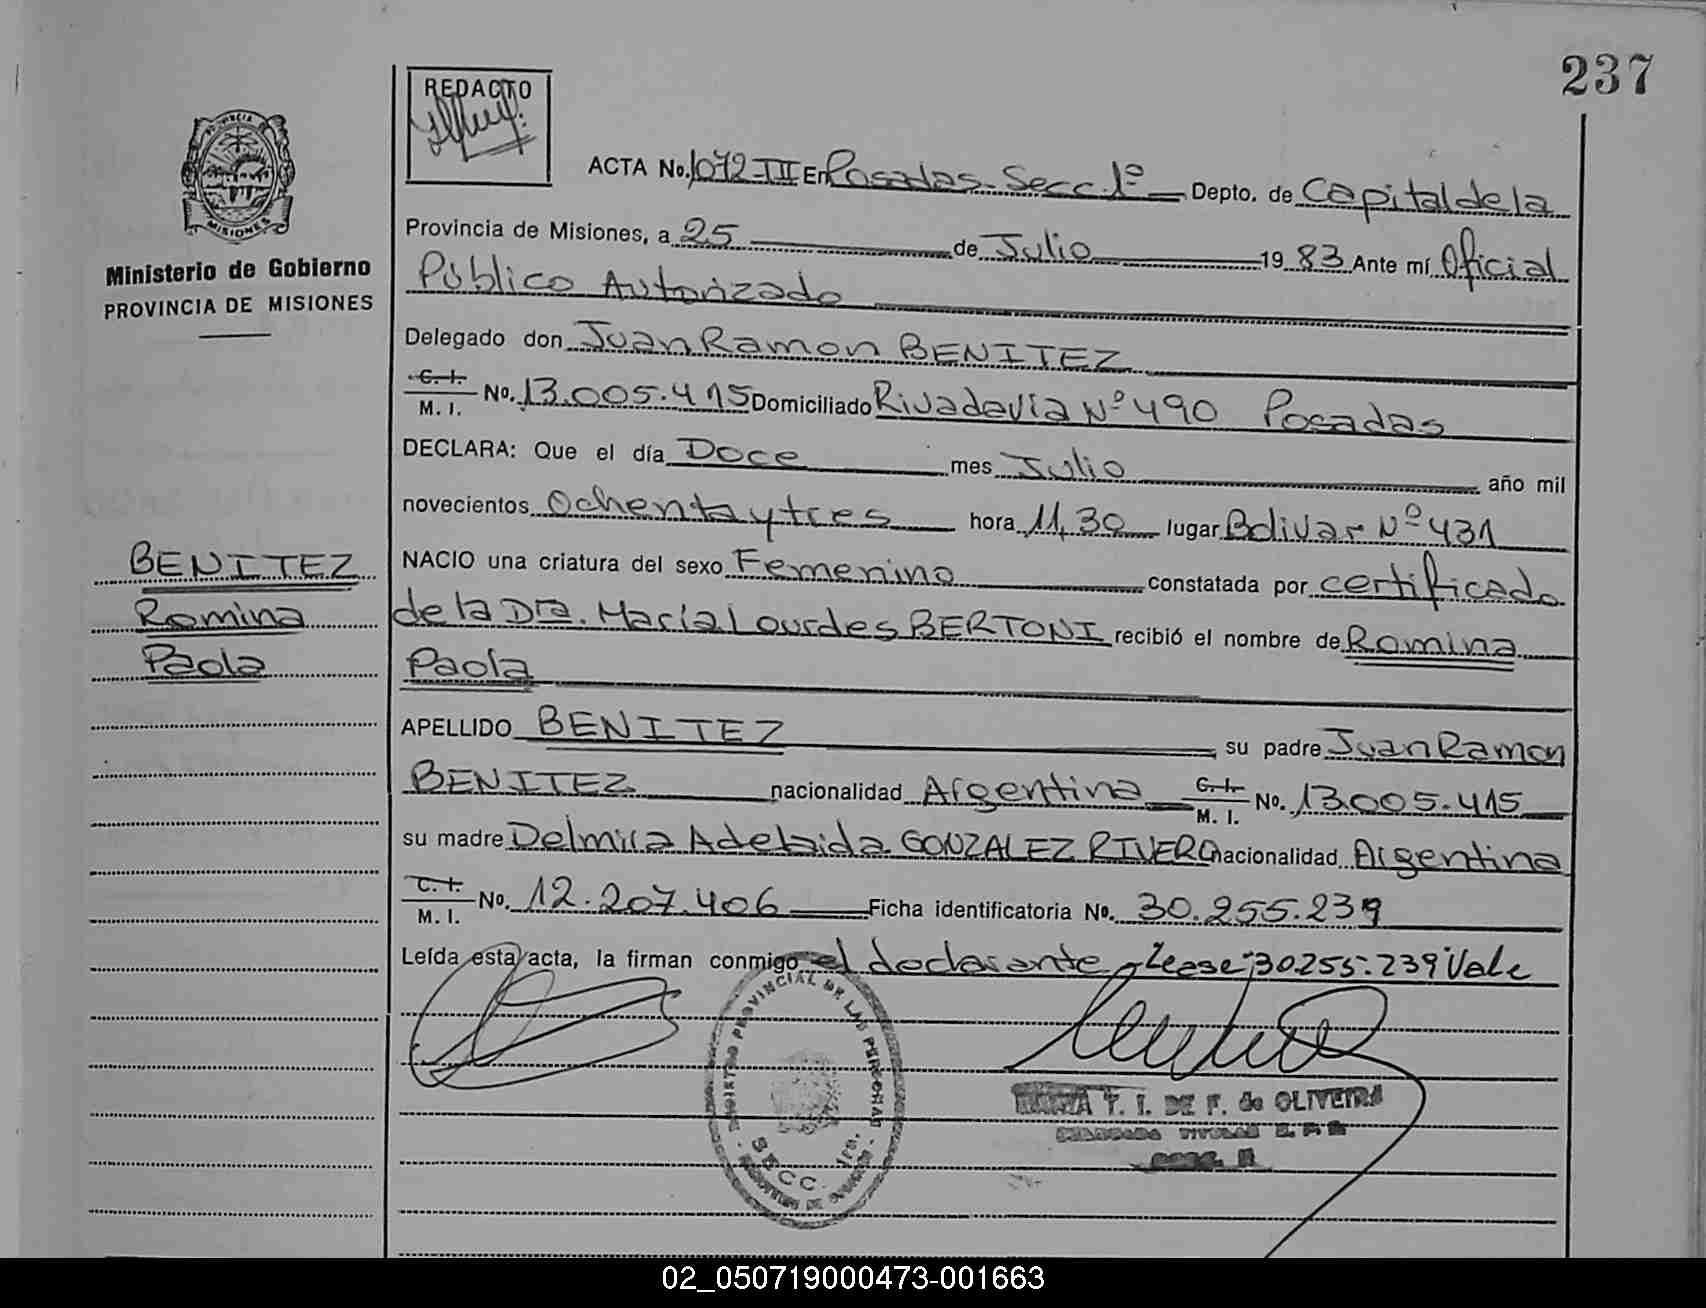 237
REDACTO
ACTA No. 1072-III En Posadas-Secc. 1º Depto. de Capital de la
Provincia de Misiones, a 25 de Julio 1983 Ante mí Oficial
Público Autorizado
Ministerio de Gobierno
PROVINCIA DE MISIONES
Delegado don Juan Ramon BENITEZ
C. I.
M. I. No. 13.005.415 Domiciliado Rivadavia Nº 490 Posadas
DECLARA: Que el día Doce mes Julio año mil
novecientos Ochenta y tres hora 11,30 lugar Bolivar Nº 431
NACIO una criatura del sexo Femenino constatada por certificado
de la Dra. María Lourdes BERTONI recibió el nombre de Romina
Paola
BENITEZ
Romina
Paola
APELLIDO BENITEZ su padre Juan Ramon
BENITEZ nacionalidad Argentina C. I.
M. I. No. 13.005.415
su madre Delmira Adelaida GONZALEZ RIVERO nacionalidad Argentina
C. I.
M. I. No. 12.207.406 Ficha identificatoria No. 30.255.239
Leída esta acta, la firman conmigo el declarante - Lease: 30.255.239 Vale
REGISTRO PROVINCIAL DE LAS PERSONAS
SECC. 1ra.
T. I. DE F. de OLIVEIRA
02_050719000473-001663